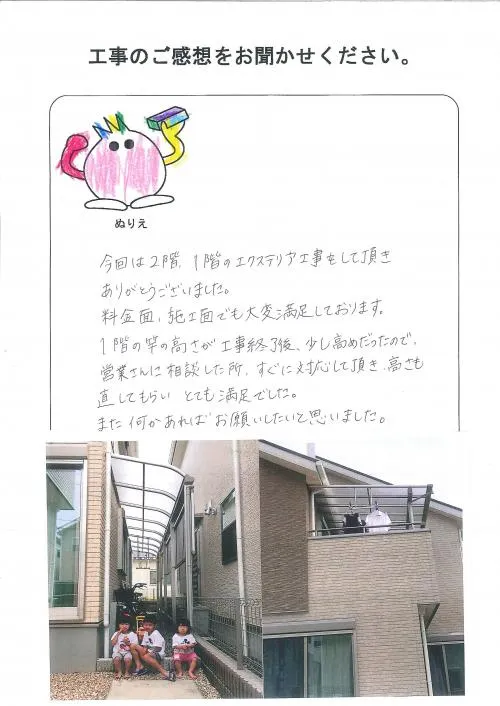 工事のご感想をお聞かせください。
ぬりえ
今回は2階、1階のエクステリア工事をして頂き
ありがとうございました。
料金面、施工面でも大変満足しております。
1階の竿の高さが工事終了後、少し高めだったので、
営業さんに相談した所、すぐに対応して頂き、高さも
直してもらい とても満足でした。
また何かあれば お願いしたいと思いました。